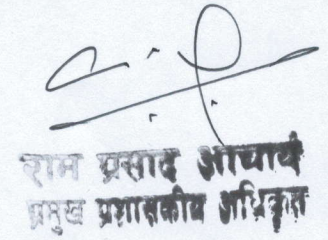 राम प्रसाद आचार्य
प्रमुख प्रशासकीय अधिकृत